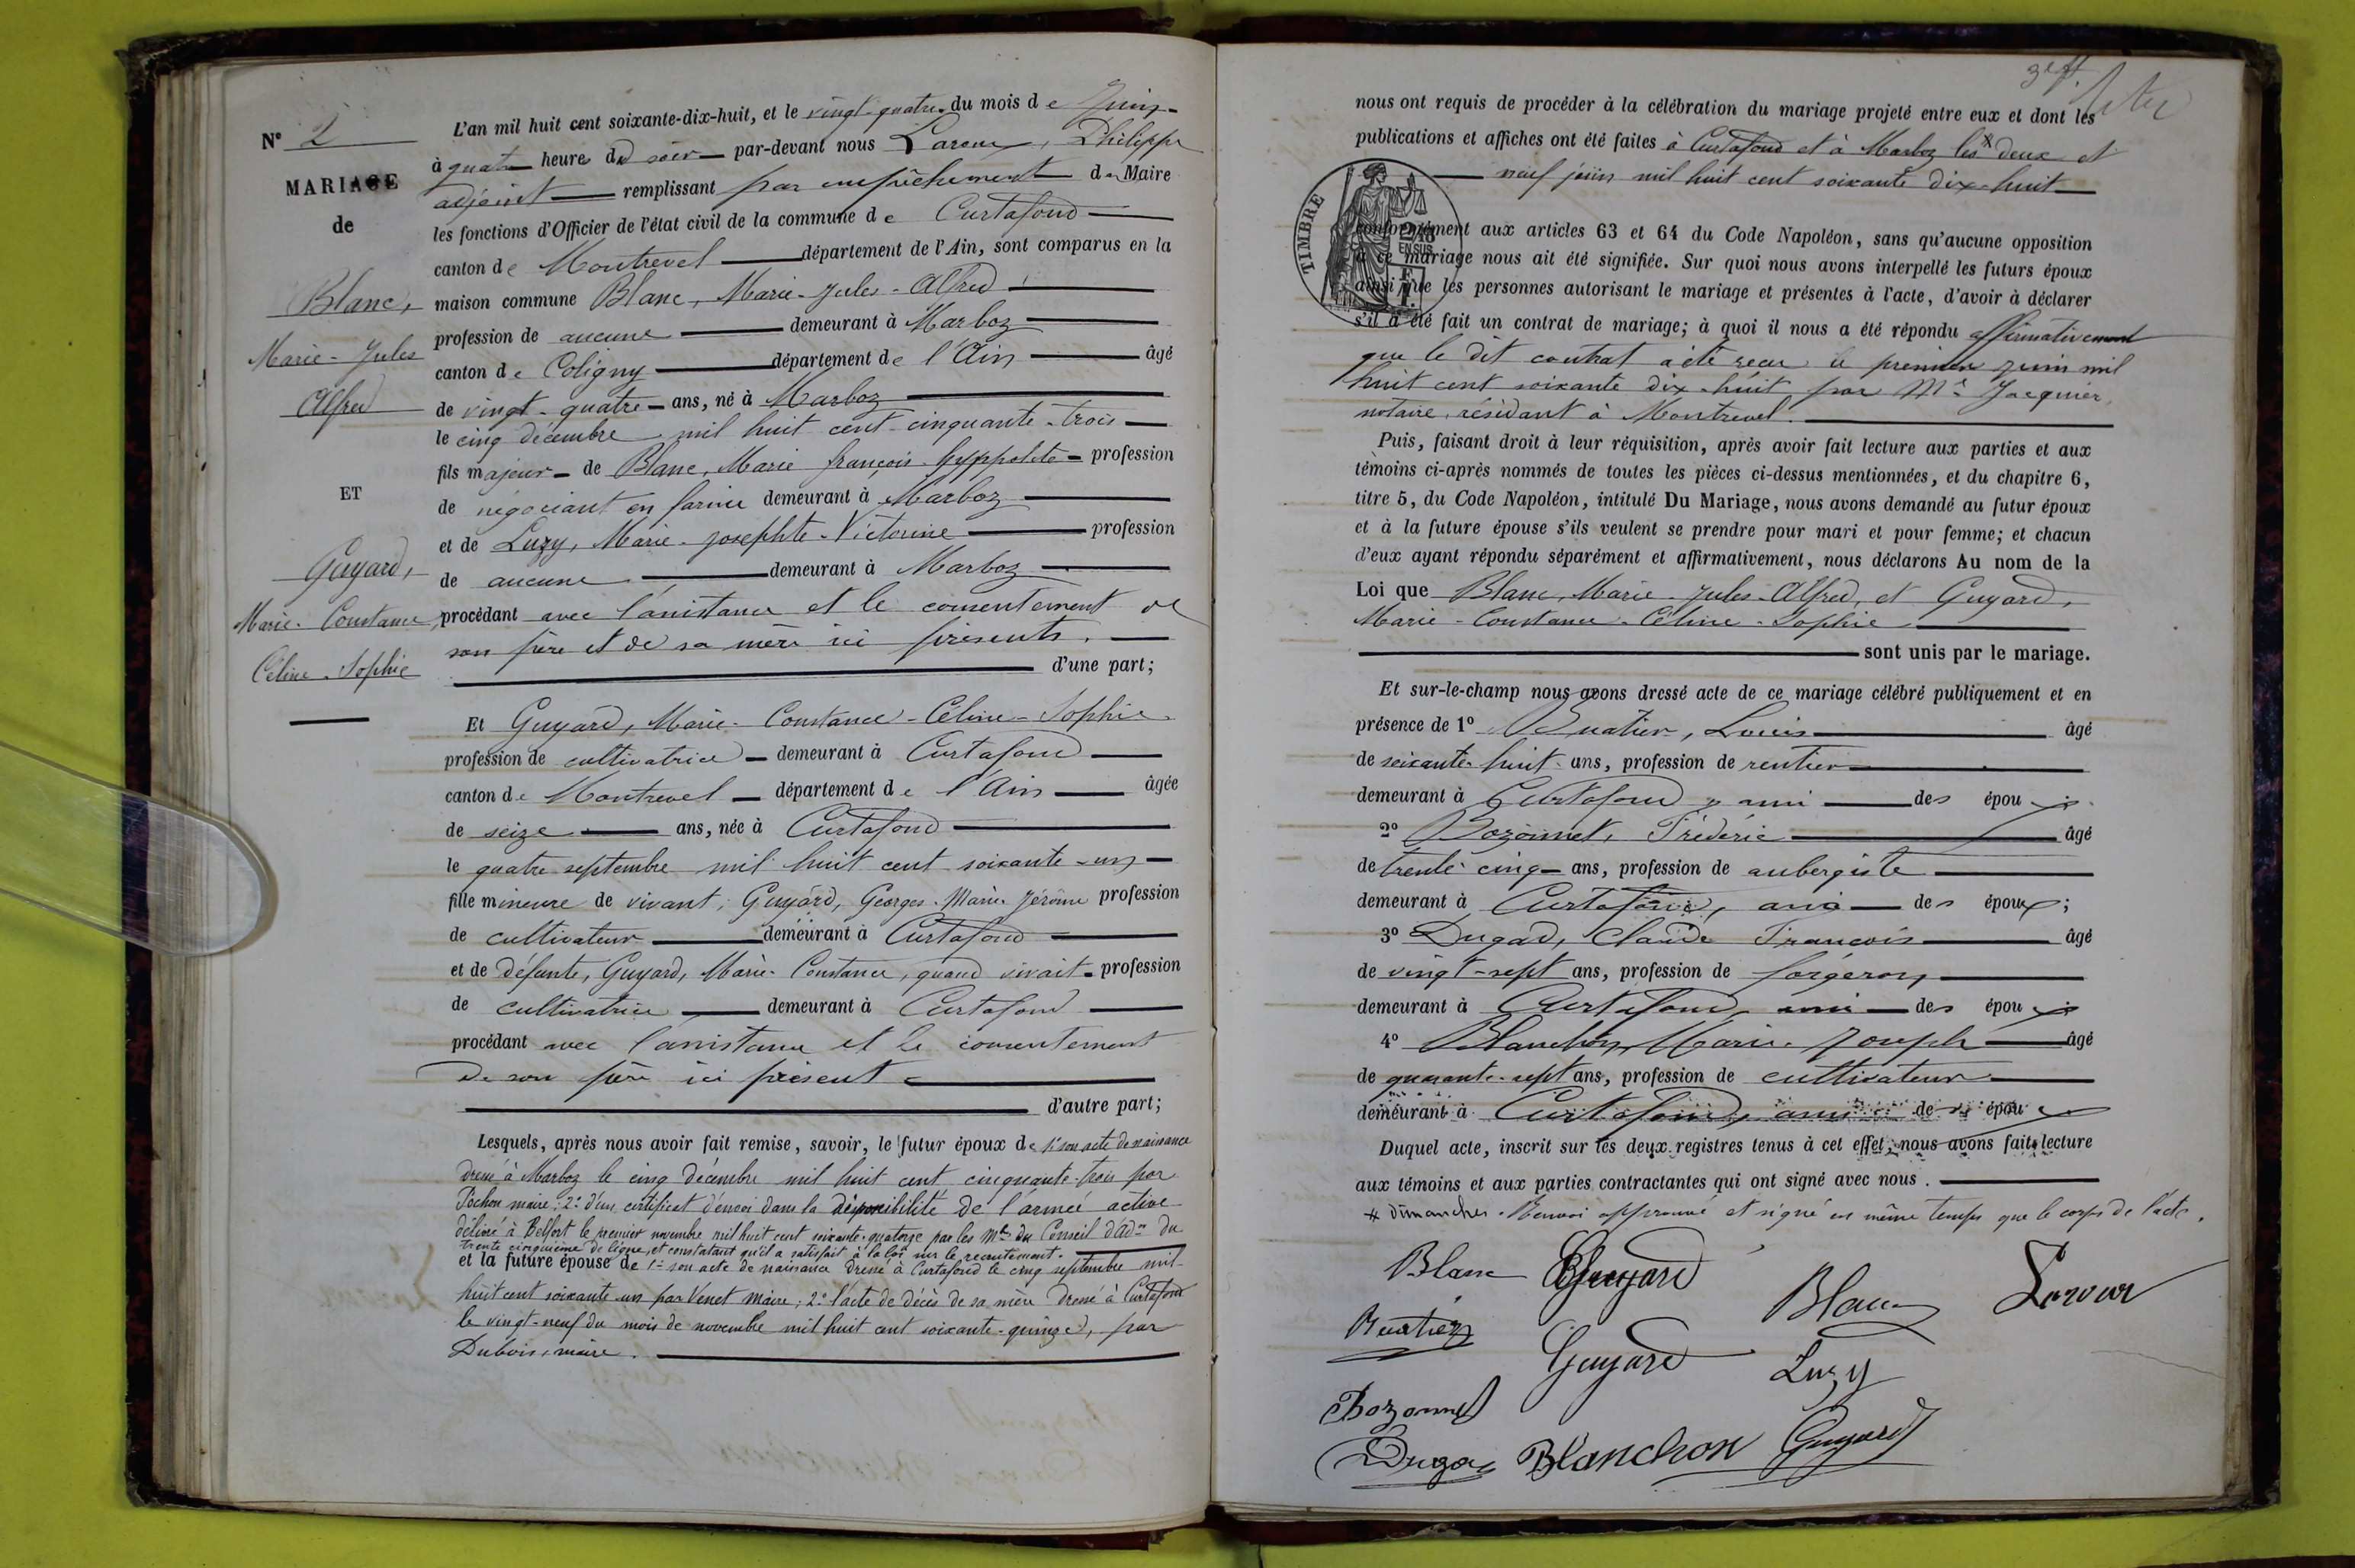 N° 2
MARIAGE
de
Blanc,
Marie-Jules
Alfred
ET
Guyard,
Marie-Constance,
Céline-Sophie
L'an mil huit cent soixante-dix-huit, et le vingt-quatre du mois de Juin
à quatre heure du soir par-devant nous Philippe
adjoint remplissant par empêchement du Maire
les fonctions d'Officier de l'état civil de la commune de Curtafond
canton de Montrevel département de l'Ain, sont comparus en la
maison commune Blanc, Marie-Jules-Alfred
profession de aucune demeurant à Marboz
canton de Coligny département de l'Ain âgé
de vingt-quatre ans, né à Marboz
le cinq décembre mil huit cent cinquante-trois
fils majeur de Blanc, Marie françois Hyppolite profession
de négociant en farine demeurant à Marboz
et de Luzy, Marie-Josephte-Victorine profession
de aucune demeurant à Marboz
procédant avec l'assistance et le consentement de
son père et de sa mère ici présents.
d'une part;
Et Guyard, Marie-Constance-Céline-Sophie
profession de cultivatrice demeurant à Curtafond
canton de Montrevel département de l'Ain âgée
de seize ans, née à Curtafond
le quatre septembre mil huit cent soixante-un
fille mineure de vivant, Guyard, Georges-Marie-Jérôme profession
de cultivateur demeurant à Curtafond
et de défunte, Guyard, Marie-Constance, quand vivait profession
de cultivatrice demeurant à Curtafond
procédant avec l'assistance et le consentement
de son père ici présent
d'autre part;
Lesquels, après nous avoir fait remise, savoir, le futur époux de 1° son acte de naissance
dressé à Marboz le cinq décembre mil huit cent cinquante-trois par
Pochon maire; 2° d'un certificat d'envoi dans la disponibilité de l'armée active
délivré à Belfort le premier novembre mil huit cent soixante-quatorze par les Mbres du Conseil d'Adon du
trente cinquième de ligne, et constatant qu'il a satisfait à la loi sur le recrutement.
et la future épouse de 1° son acte de naissance dressé à Curtafond le cinq septembre mil
huit cent soixante un par Venet maire; 2° l'acte de décès de sa mère dressé à Curtafond
le vingt-neuf du mois de novembre mil huit cent soixante-quinze, par
Dubois, maire.
nous ont requis de procéder à la célébration du mariage projeté entre eux et dont les
publications et affiches ont été faites à Curtafond et à Marboz les deux et
neuf juin mil huit cent soixante dix-huit
TIMBRE
2/10
EN SUS
conformément aux articles 63 et 64 du Code Napoléon, sans qu'aucune opposition
à ce mariage nous ait été signifiée. Sur quoi nous avons interpellé les futurs époux
ainsi que les personnes autorisant le mariage et présentes à l'acte, d'avoir à déclarer
s'il a été fait un contrat de mariage; à quoi il nous a été répondu affirmativement
que le dit contrat a été reçu le premier juin mil
huit cent soixante dix-huit par Me Jacquier,
notaire, résidant à Montrevel.
Puis, faisant droit à leur réquisition, après avoir fait lecture aux parties et aux
témoins ci-après nommés de toutes les pièces ci-dessus mentionnées, et du chapitre 6,
titre 5, du Code Napoléon, intitulé Du Mariage, nous avons demandé au futur époux
et à la future épouse s'ils veulent se prendre pour mari et pour femme; et chacun
d'eux ayant répondu séparément et affirmativement, nous déclarons Au nom de la
Loi que Blanc, Marie-Jules-Alfred, et Guyard,
Marie-Constance-Céline-Sophie
sont unis par le mariage.
Et sur-le-champ nous avons dressé acte de ce mariage célébré publiquement et en
présence de 1° Louis âgé
de soixante-huit ans, profession de rentier
demeurant à Curtafond, ami des époux
2° Bozonnet, Frédéric âgé
de trente-cinq ans, profession de aubergiste
demeurant à Curtafond, ami des époux;
3° Dugad, Claude François âgé
de vingt-sept ans, profession de forgeron
demeurant à Curtafond, ami des époux
4° Blanchon, Marie-Joseph âgé
de quarante-sept ans, profession de cultivateur
demeurant à Curtafond, ami des époux
Duquel acte, inscrit sur les deux registres tenus à cet effet, nous avons fait lecture
aux témoins et aux parties contractantes qui ont signé avec nous.
# dimanches. Renvoi approuvé et signé en même temps que le corps de l'acte.
Blanc Guyard
Blanc
Guyard Luzy
Bozonnet
Blanchon Guyard